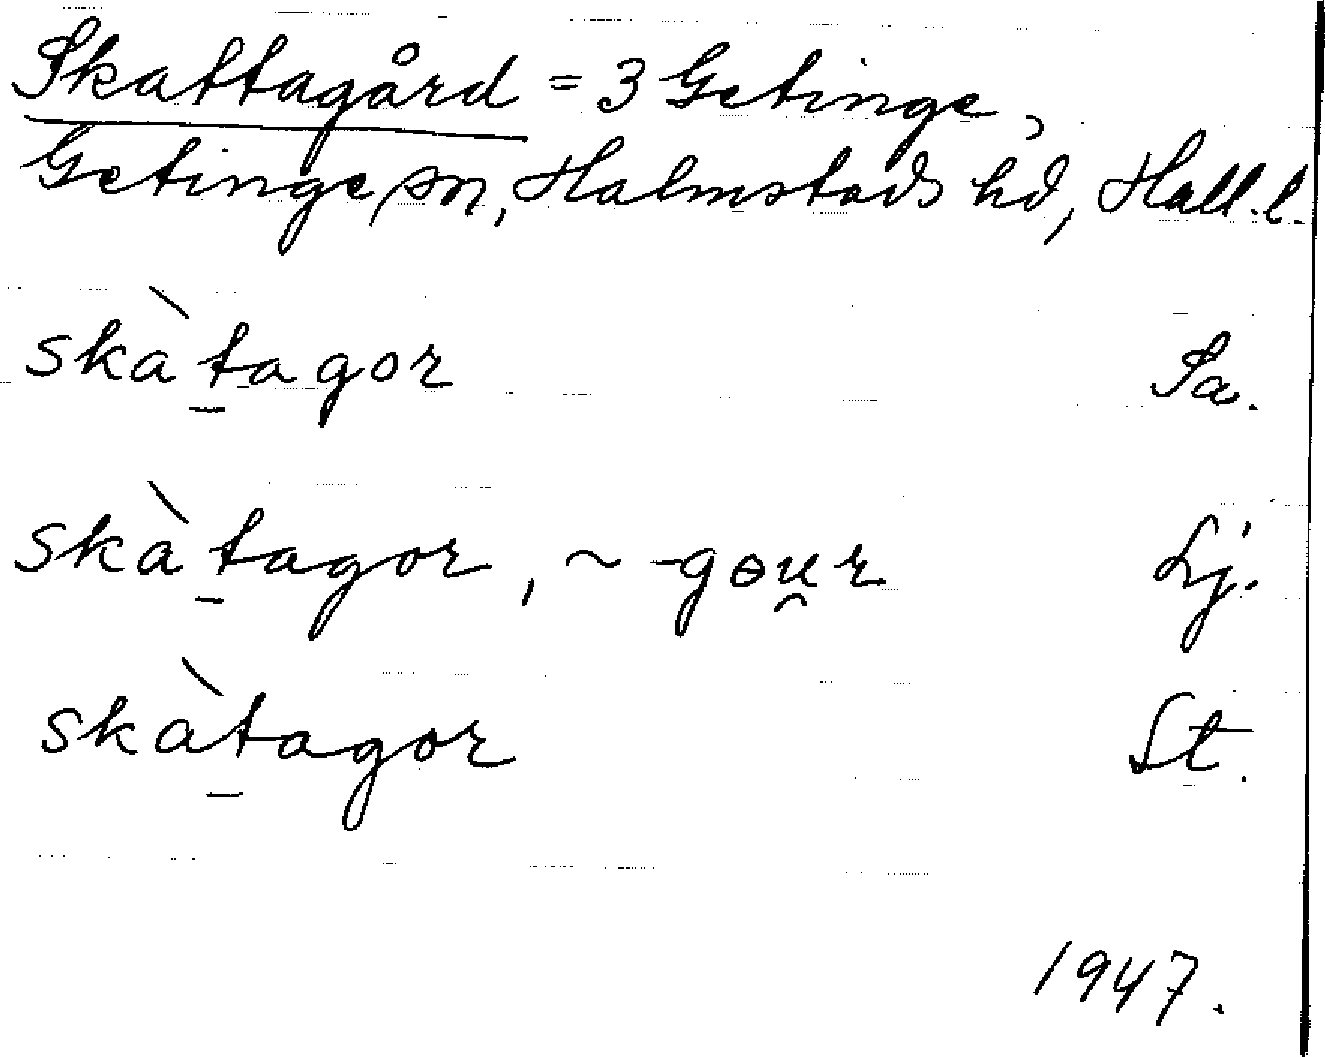 Skattagård = 3 Getinge,
Getinge sn, Halmstads hd, Hall. l.
skàt̲agor Sa.
skàt̲agor, ~ -gɵu̯r Lj.
skàt̲agor St.
1947.